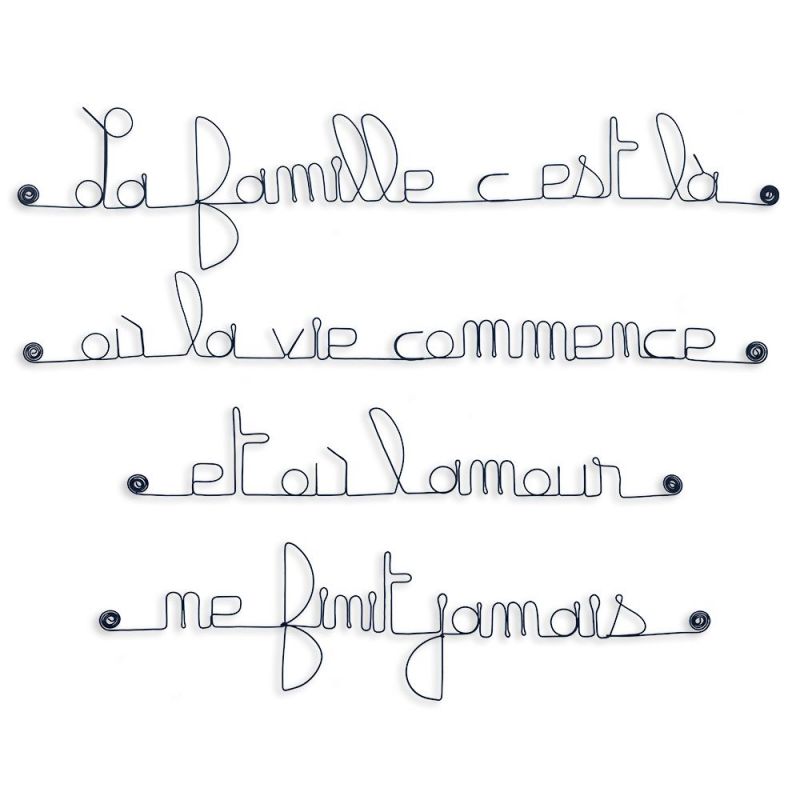 La famille c est là
où la vie commence
et où lamour
ne finit jamais